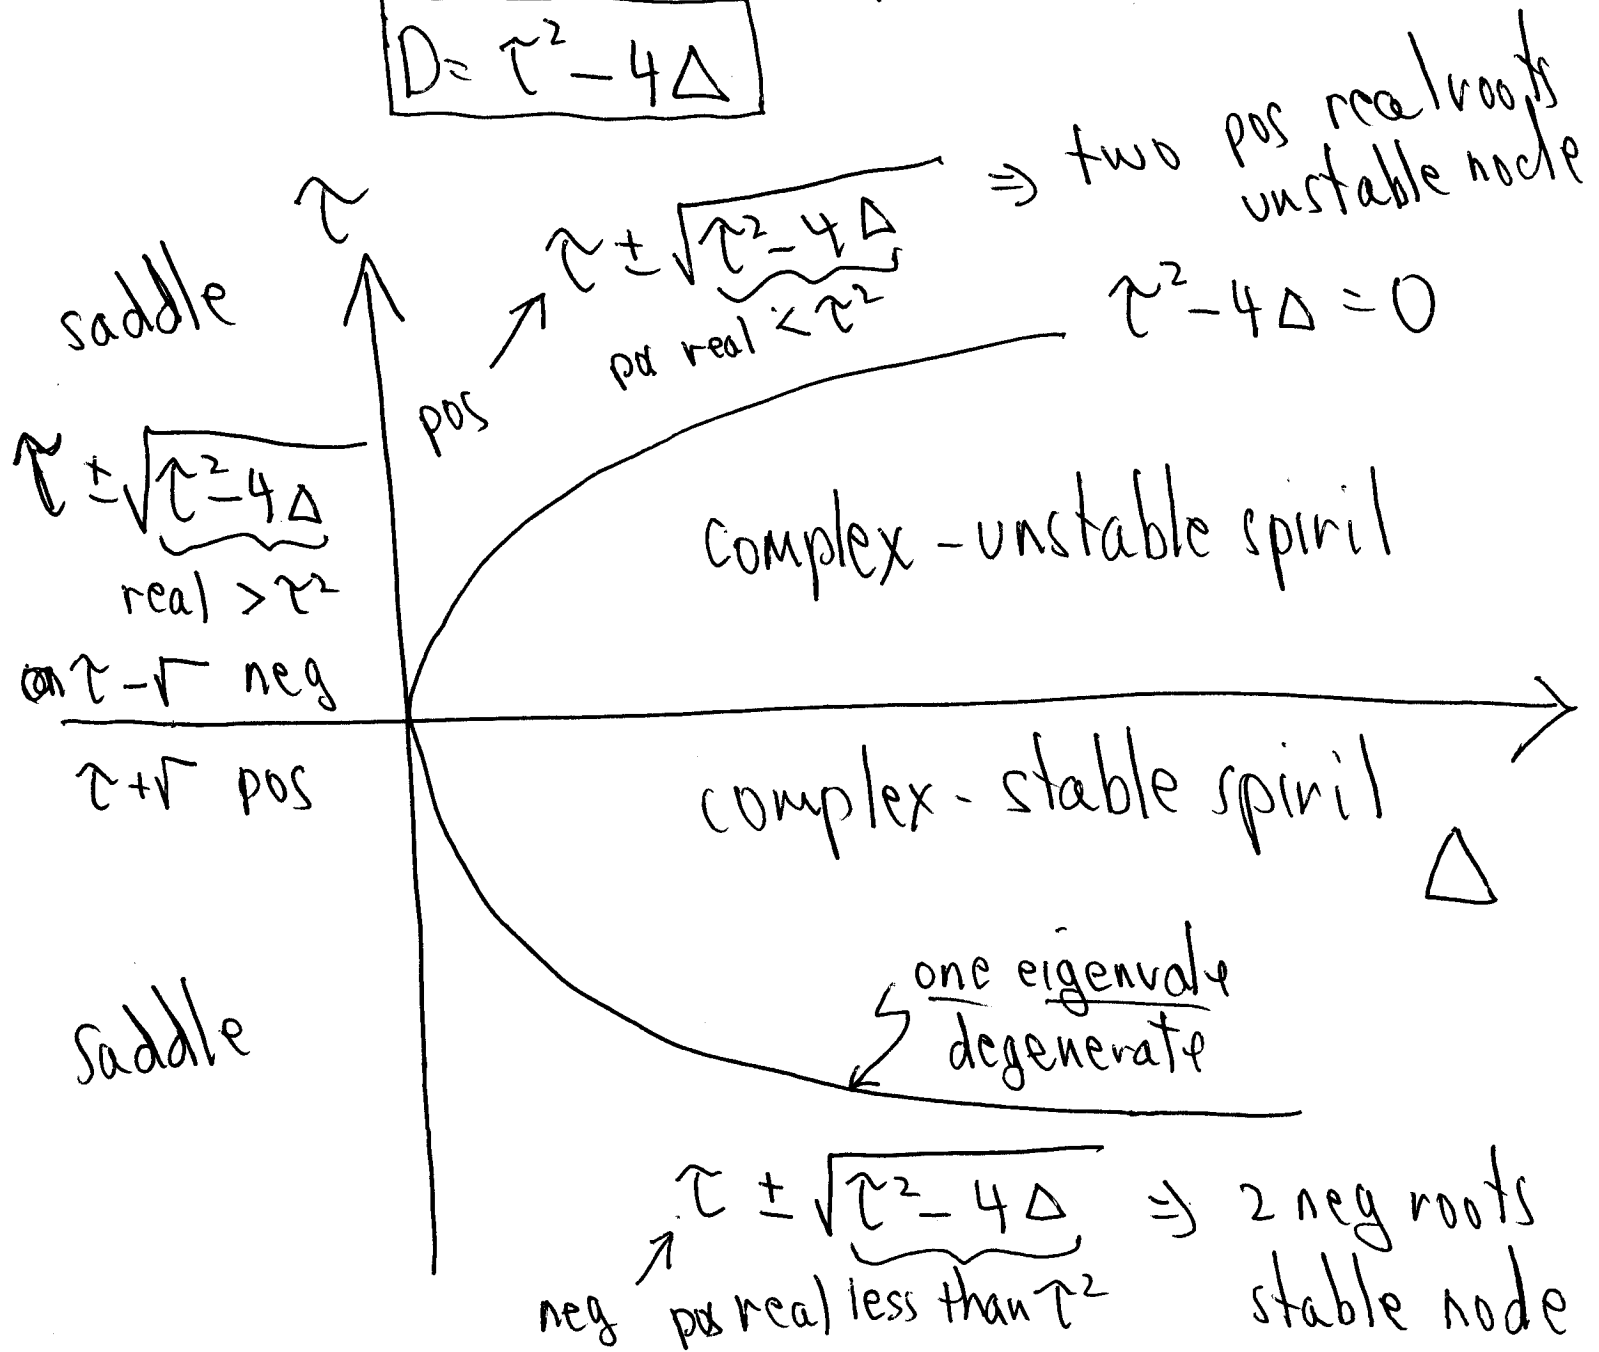 D = τ² – 4Δ
τ
saddle
τ ± √τ² – 4Δ ⇒ two pos real roots
unstable node
pos real < τ²
pos
τ² – 4Δ = 0
τ ± √τ² – 4Δ
real > τ²
τ – √ neg
τ + √ pos
complex – unstable spiril
complex – stable spiril
Δ
saddle
one eigenvale
degenerate
τ ± √τ² – 4Δ ⇒ 2 neg roots
stable node
neg pos real less than τ²